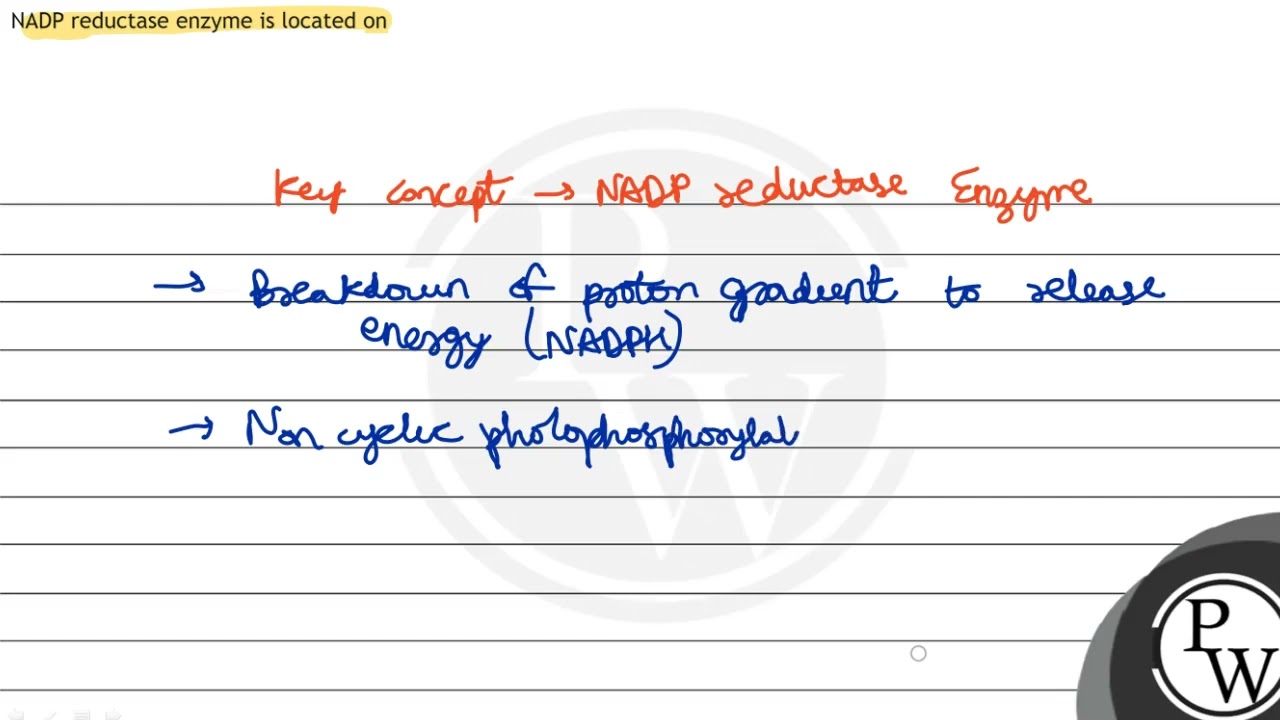 NADP reductase enzyme is located on
Key concept → NADP reductase Enzyme
→ Breakdown of proton gradient to release
energy (NADPH)
→ Non cyclic photophosphorylat
PW
PW